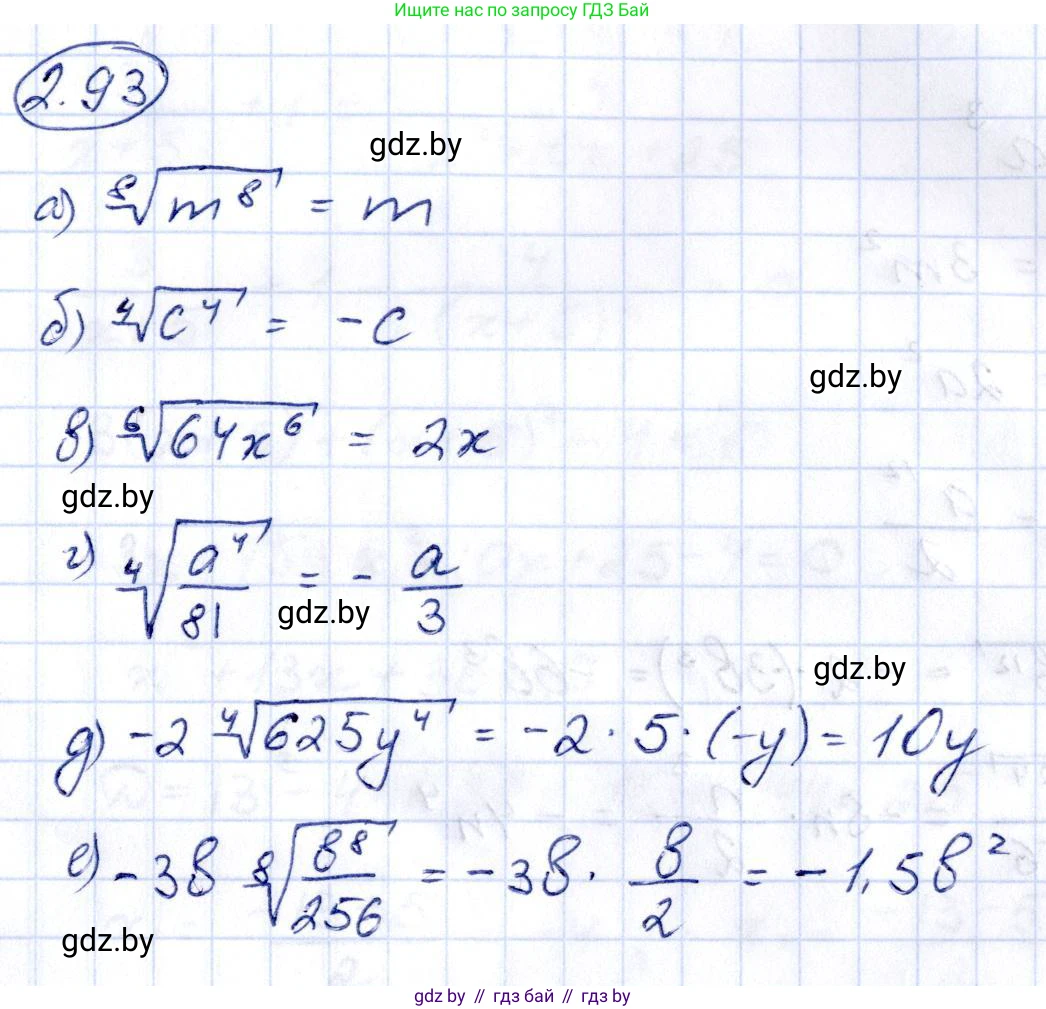 Ищите нас по запросу ГДЗ Бай
2.93
gdz.by
а) ⁸√(m⁸) = m
б) ⁴√(c⁴) = -c
gdz.by
в) ⁶√(64x⁶) = 2x
gdz.by
г) ⁴√(a⁴/81) = - a/3
gdz.by
gdz.by
д) -2 ⁴√(625y⁴) = -2 · 5 · (-y) = 10y
е) -3b ⁸√(b⁸/256) = -3b · b/2 = -1,5b²
gdz.by
gdz by // гдз бай // гдз by